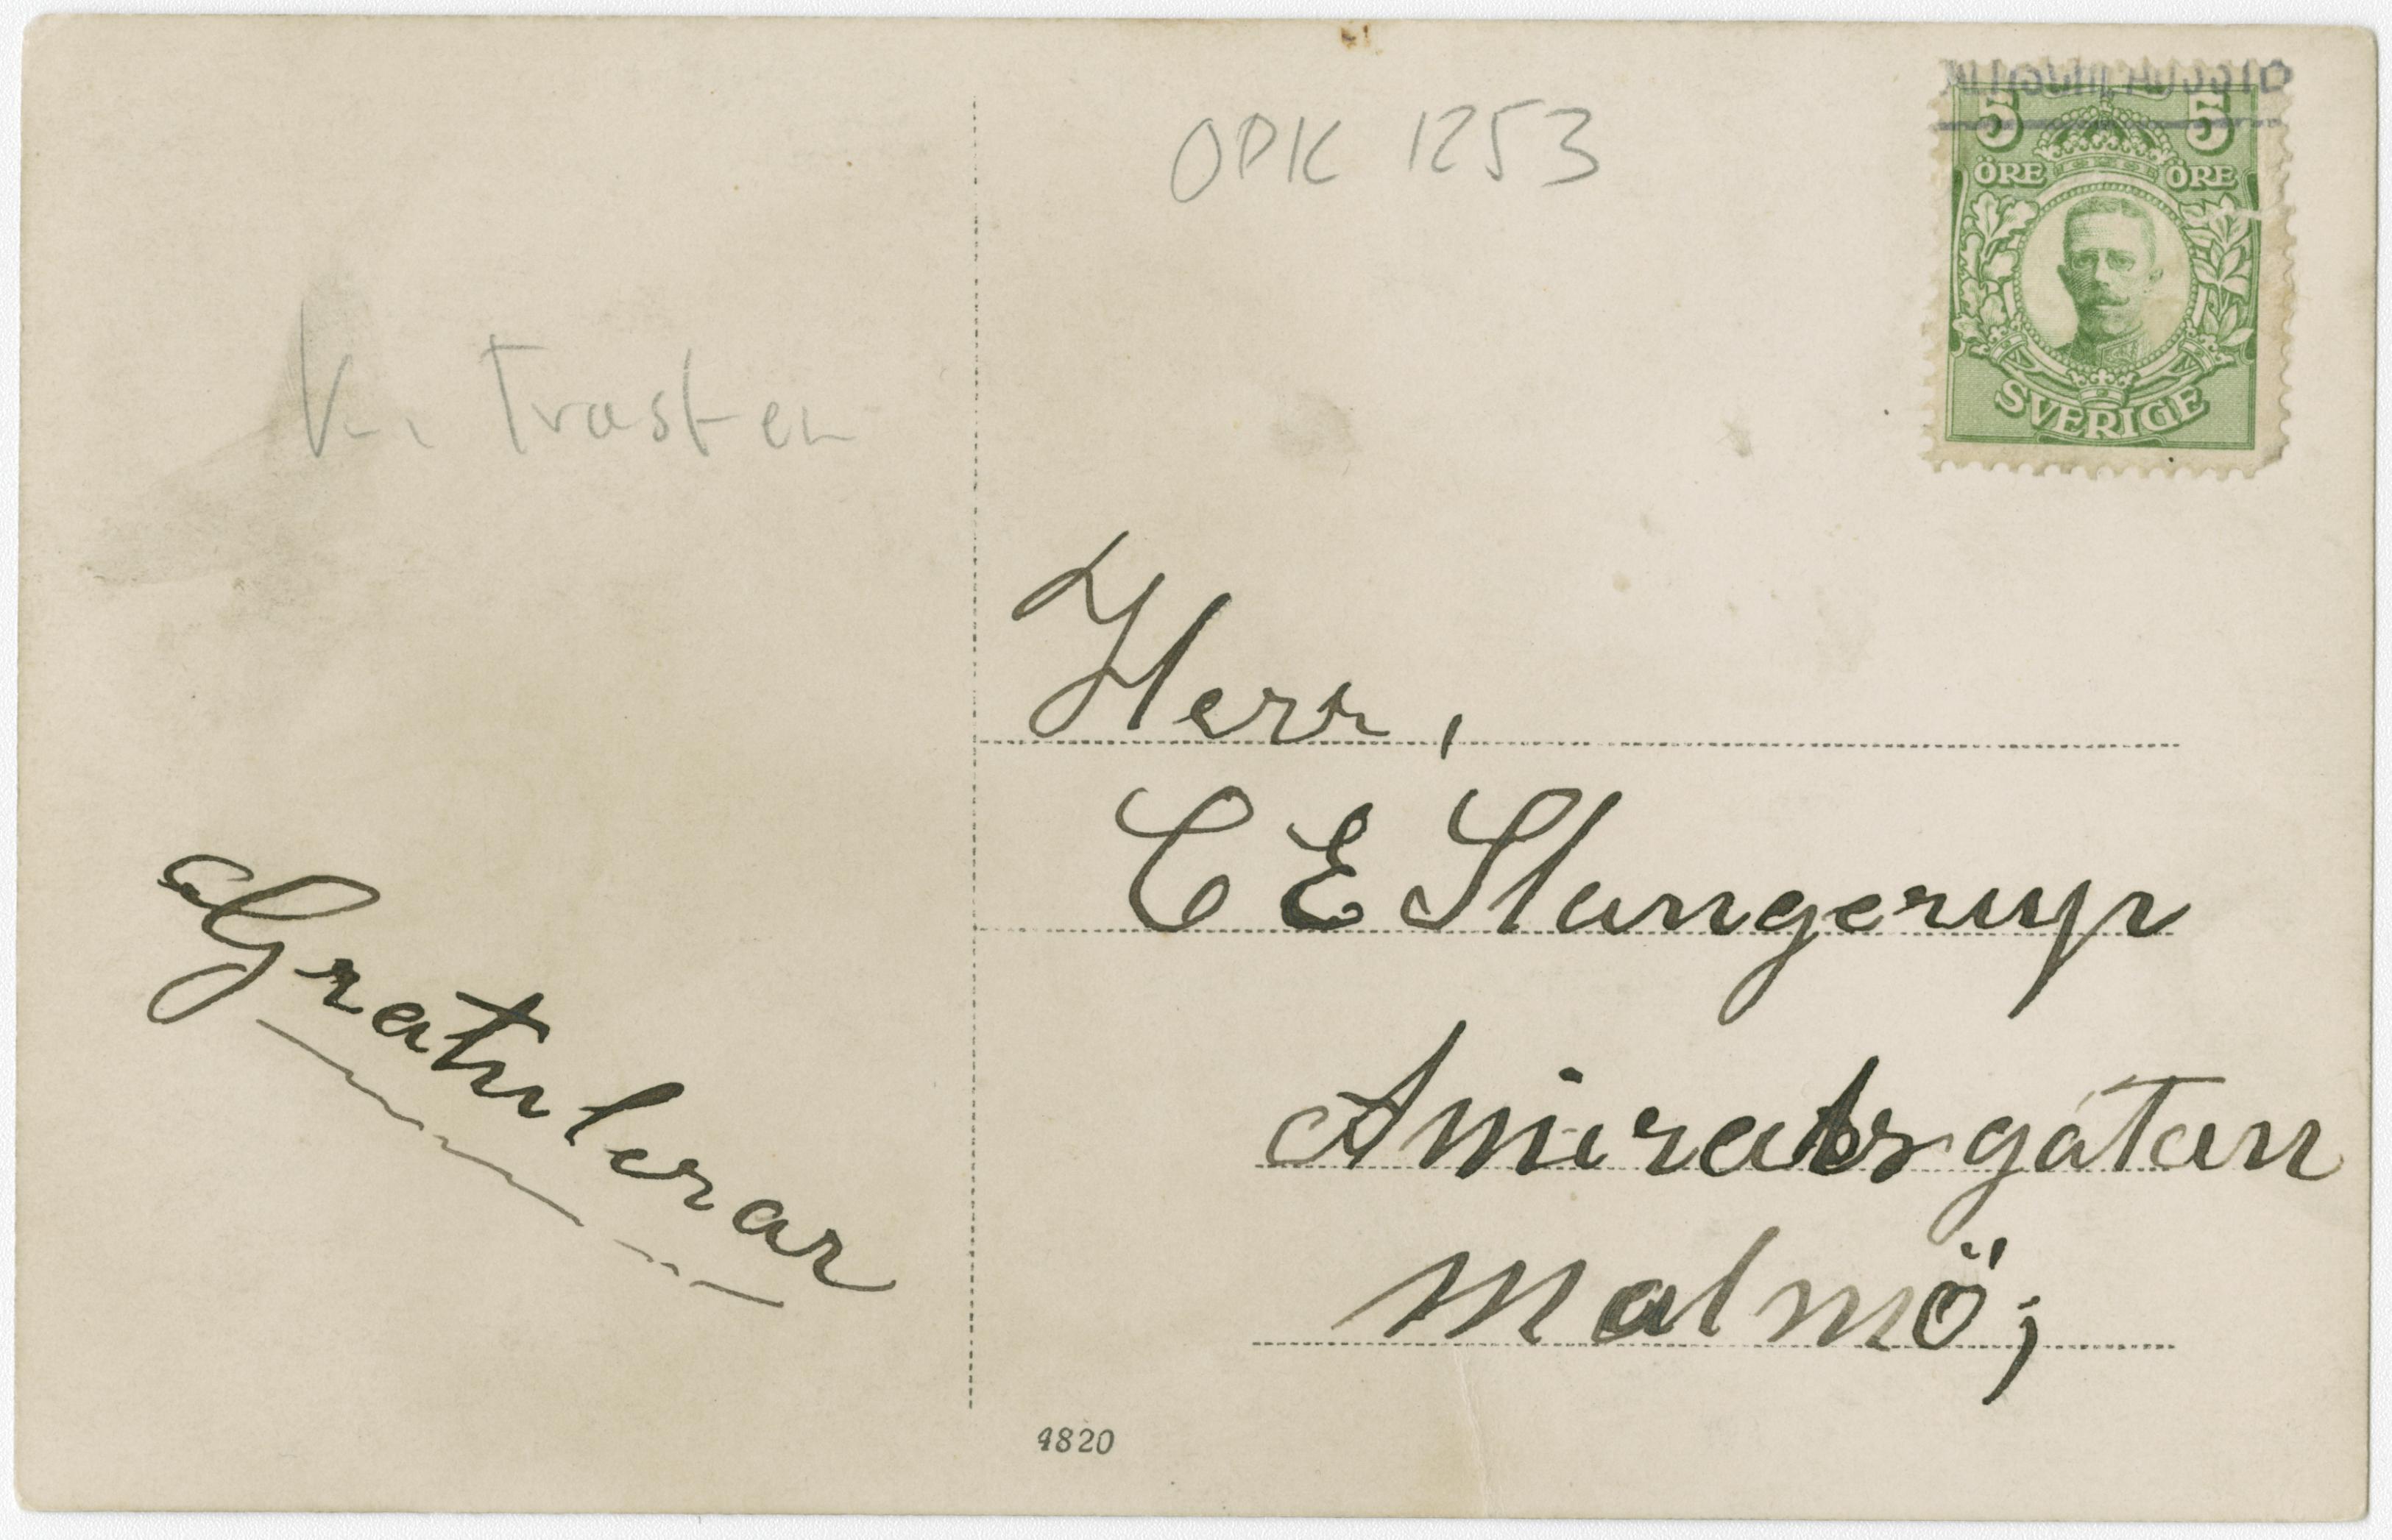 OPK 1253
5 5
ÖRE ÖRE
SVERIGE
Kv. Trasten
Herr,
C E Slangerup
Amiralsgatan
Malmö;
Gratulerar
4820